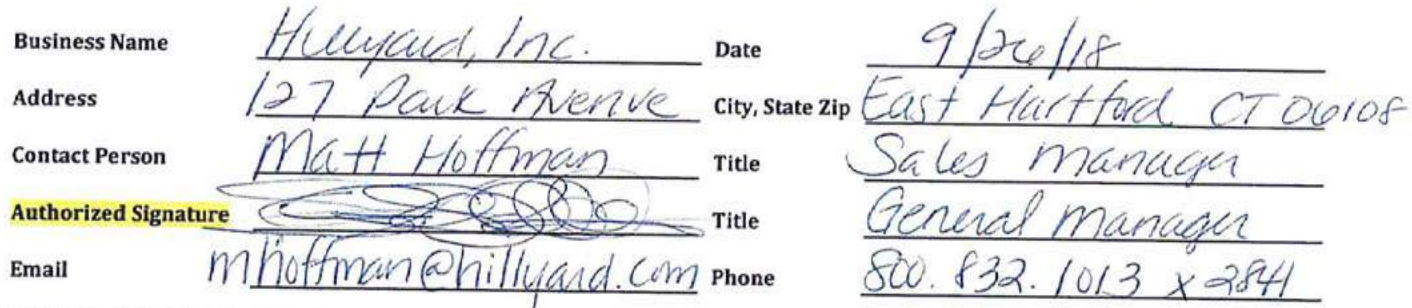 Business Name Hillyard, Inc. Date 9/26/18
Address 127 Park Avenue City, State Zip East Hartford CT 06108
Contact Person Matt Hoffman Title Sales Manager
Authorized Signature Title General Manager
Email mhoffman@hillyard.com Phone 800.832.1013 x2841